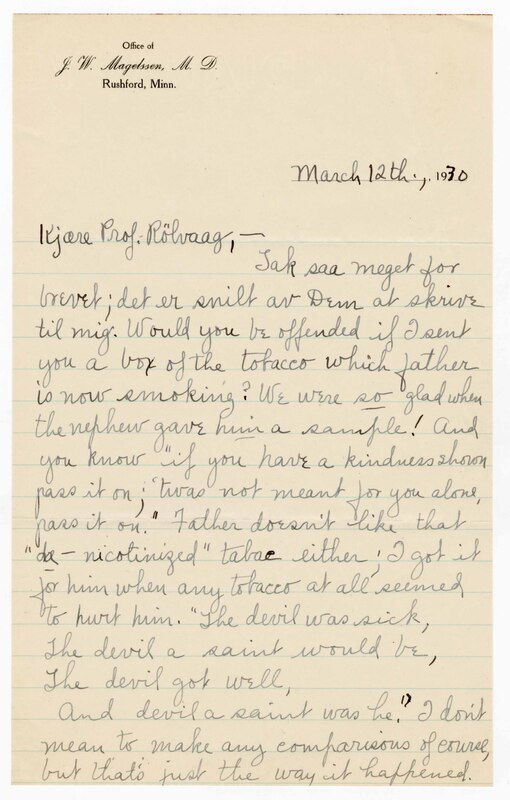 Office of
J. W. Magelssen, M. D.
Rushford, Minn.
March 12th., 1930
Kjære Prof. Rölvaag, —
Tak saa meget for
brevet; det er snilt av Dem at skrive
til mig. Would you be offended if I sent
you a box of the tobacco which father
is now smoking? We were so glad when
the nephew gave him a sample! And
you know "if you have a kindness shown
pass it on; 'twas not meant for you alone,
pass it on." Father doesn't like that
"de-nicotinized" tabac either; I got it
for him when any tobacco at all seemed
to hurt him. "The devil was sick,
The devil a saint would be,
The devil got well,
And devil a saint was he." I don't
mean to make any comparisons of course,
but that's just the way it happened.